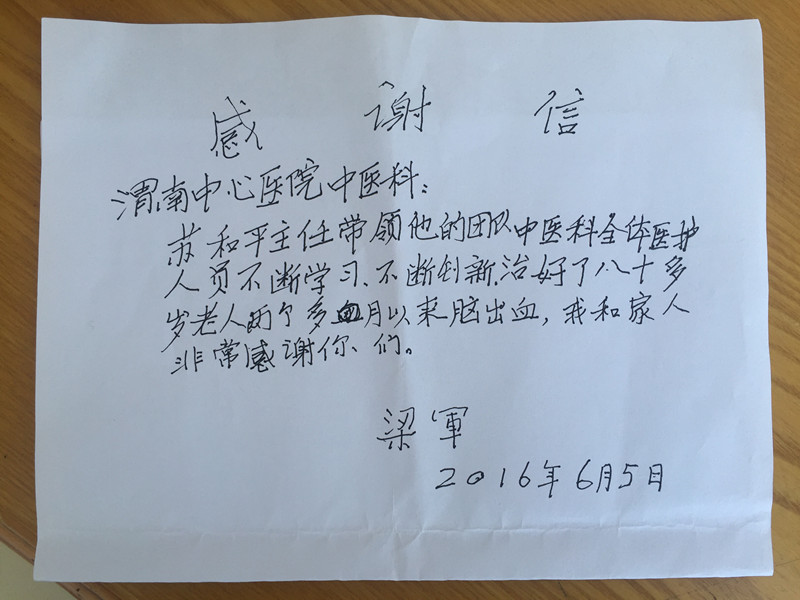 感谢信
渭南中心医院中医科：
苏和平主任带领他的团队中医科全体医护
人员不断学习、不断创新、治好了八十多
岁老人两个多月以来脑出血，我和家人
非常感谢你们。
梁軍
2016年6月5日